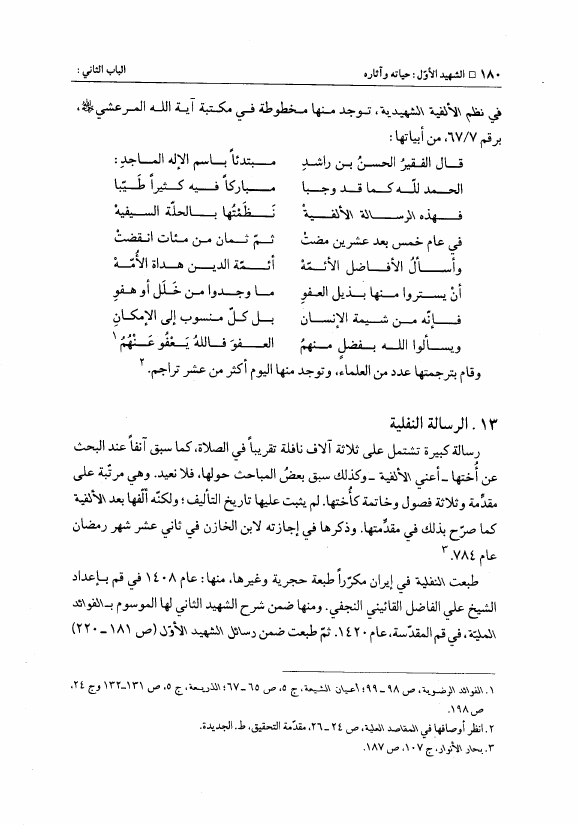 ١٨٠ □ الشهيد الأوّل : حياته وآثاره الباب الثاني :
في نظم الألفية الشهيدية، توجد منها مخطوطة في مكتبة آية الله المرعشي ﵀،
برقم ٦٧/٧، من أبياتها:
قال الفقيرُ الحسنُ بن راشدِ مبتدئاً باسم الإله الماجدِ:
الحمد للّه كما قد وجبا مباركاً فيه كثيراً طَيّبا
فهذه الرسالة الألفيةْ نَظَمْتُها بالحلّة السيفيهْ
في عام خمس بعد عشرين مضتْ ثمّ ثمان من مئات انقضتْ
وأسألُ الأفاضل الأئمّهْ أئمّة الدين هداة الأُمَّهْ
أنْ يستروا منها بذيل العفوِ ما وجدوا من خَلَل أو هفوِ
فإنّه من شيمة الإنسان بل كلّ منسوب إلى الإمكانِ
ويسألوا الله بفضلٍ منهمُ العفوَ فاللهُ يَعْفُو عَنْهُمُ ١
وقام بترجمتها عدد من العلماء، وتوجد منها اليوم أكثر من عشر تراجم.٢
١٣ . الرسالة النفلية
رسالة كبيرة تشتمل على ثلاثة آلاف نافلة تقريباً في الصلاة، كما سبق آنفاً عند البحث
عن أُختها ـ أعني الألفية ـ وكذلك سبق بعضُ المباحث حولها، فلا نعيد. وهي مرتّبة على
مقدّمة وثلاثة فصول وخاتمة كأُختها. لم يثبت عليها تاريخ التأليف؛ ولكنّه ألّفها بعد الألفية
كما صرّح بذلك في مقدّمتها. وذكرها في إجازته لابن الخازن في ثاني عشر شهر رمضان
عام ٧٨٤.٣
طبعت النفلية في إيران مكرّراً طبعة حجرية وغيرها، منها: عام ١٤٠٨ في قم بإعداد
الشيخ علي الفاضل القائيني النجفي. ومنها ضمن شرح الشهيد الثاني لها الموسوم بـالفوائد
المليّة، في قم المقدّسة، عام ١٤٢٠. ثمّ طبعت ضمن رسائل الشهيد الأوّل (ص ١٨١ ـ ٢٢٠)
١. الفوائد الرضوية، ص ٩٨ ـ ٩٩؛ أعيان الشيعة، ج ٥، ص ٦٥ ـ ٦٧؛ الذريعة، ج ٥، ص ١٣١ـ١٣٢ وج ٢٤،
ص ١٩٨.
٢. انظر أوصافها في المقاصد العلية، ص ٢٤ ـ ٢٦، مقدّمة التحقيق، ط. الجديدة.
٣. بحار الأنوار، ج ١٠٧، ص ١٨٧.